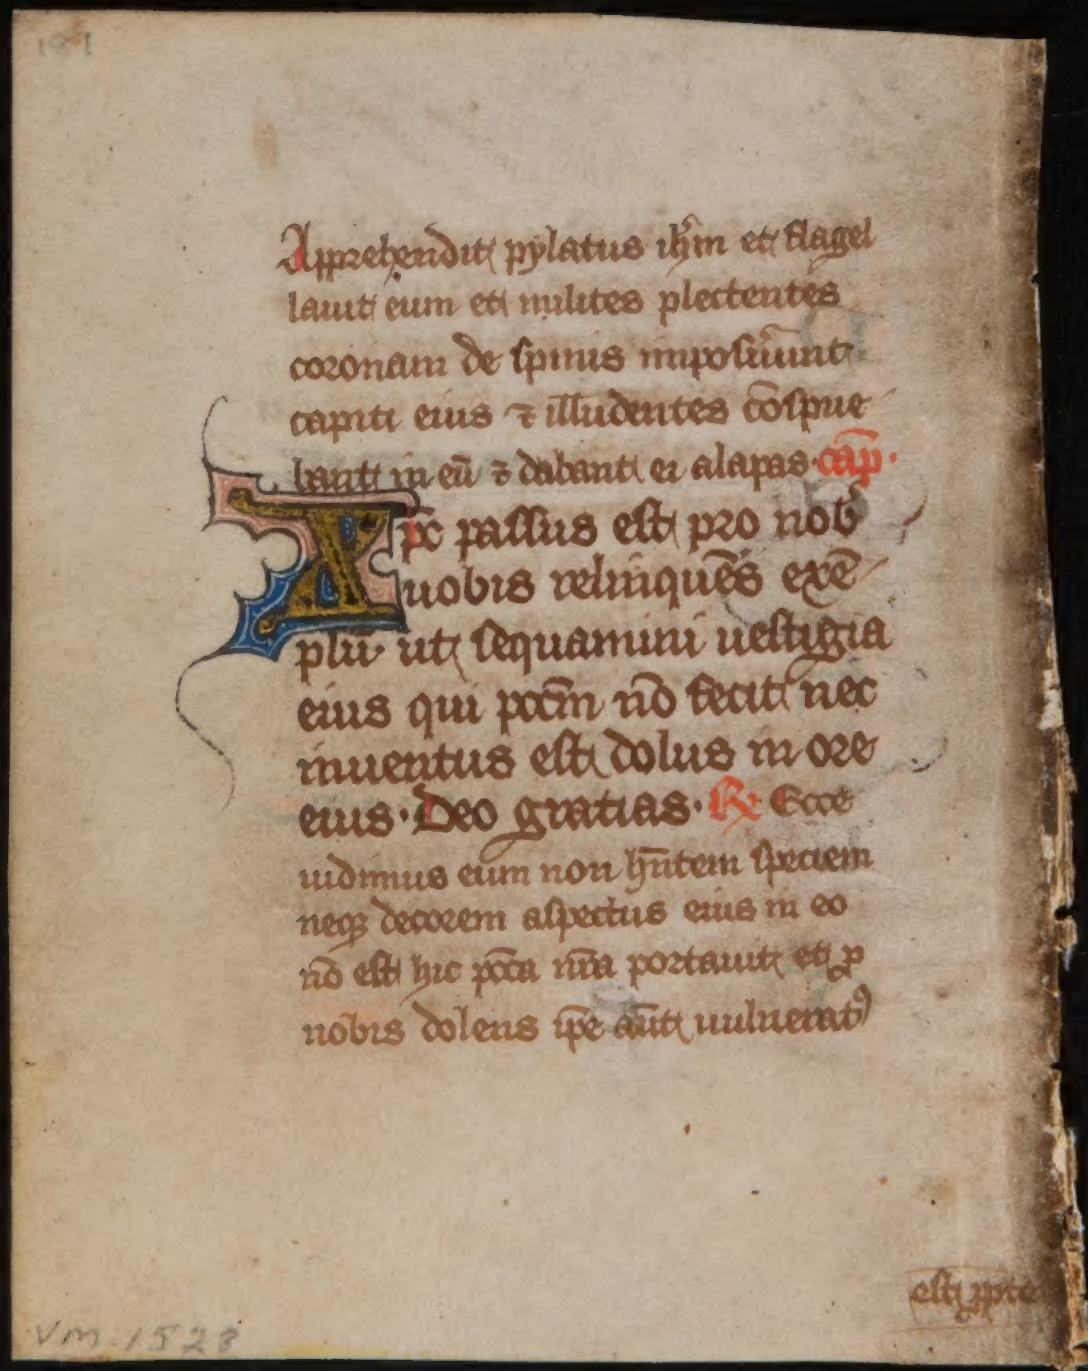 191
Apprehendit pylatus ih̄m et flagel
lauit eum et milites plectentes
coronam de spinis imposuer̄unt
capiti eius ⁊ illudentes cōspue
bant in eū ⁊ dabant ei alapas · cap̄ ·
Xp̄c passus est pro nob̄
uobis relinquēs exē
plū ut sequamini uestigia
eius qui pcc̄m nō fecit nec
inuentus est dolus in ore
eius · Deo gratias · ℟ Ecce
uidimus eum non hn̄tem speciem
neqꝫ decorem aspectus eius in eo
nō est hic pcc̄a nr̄a portauit et ꝓ
nobis dolens ip̄e aūt uulneratꝰ
est ꝓpte
VM. 1523